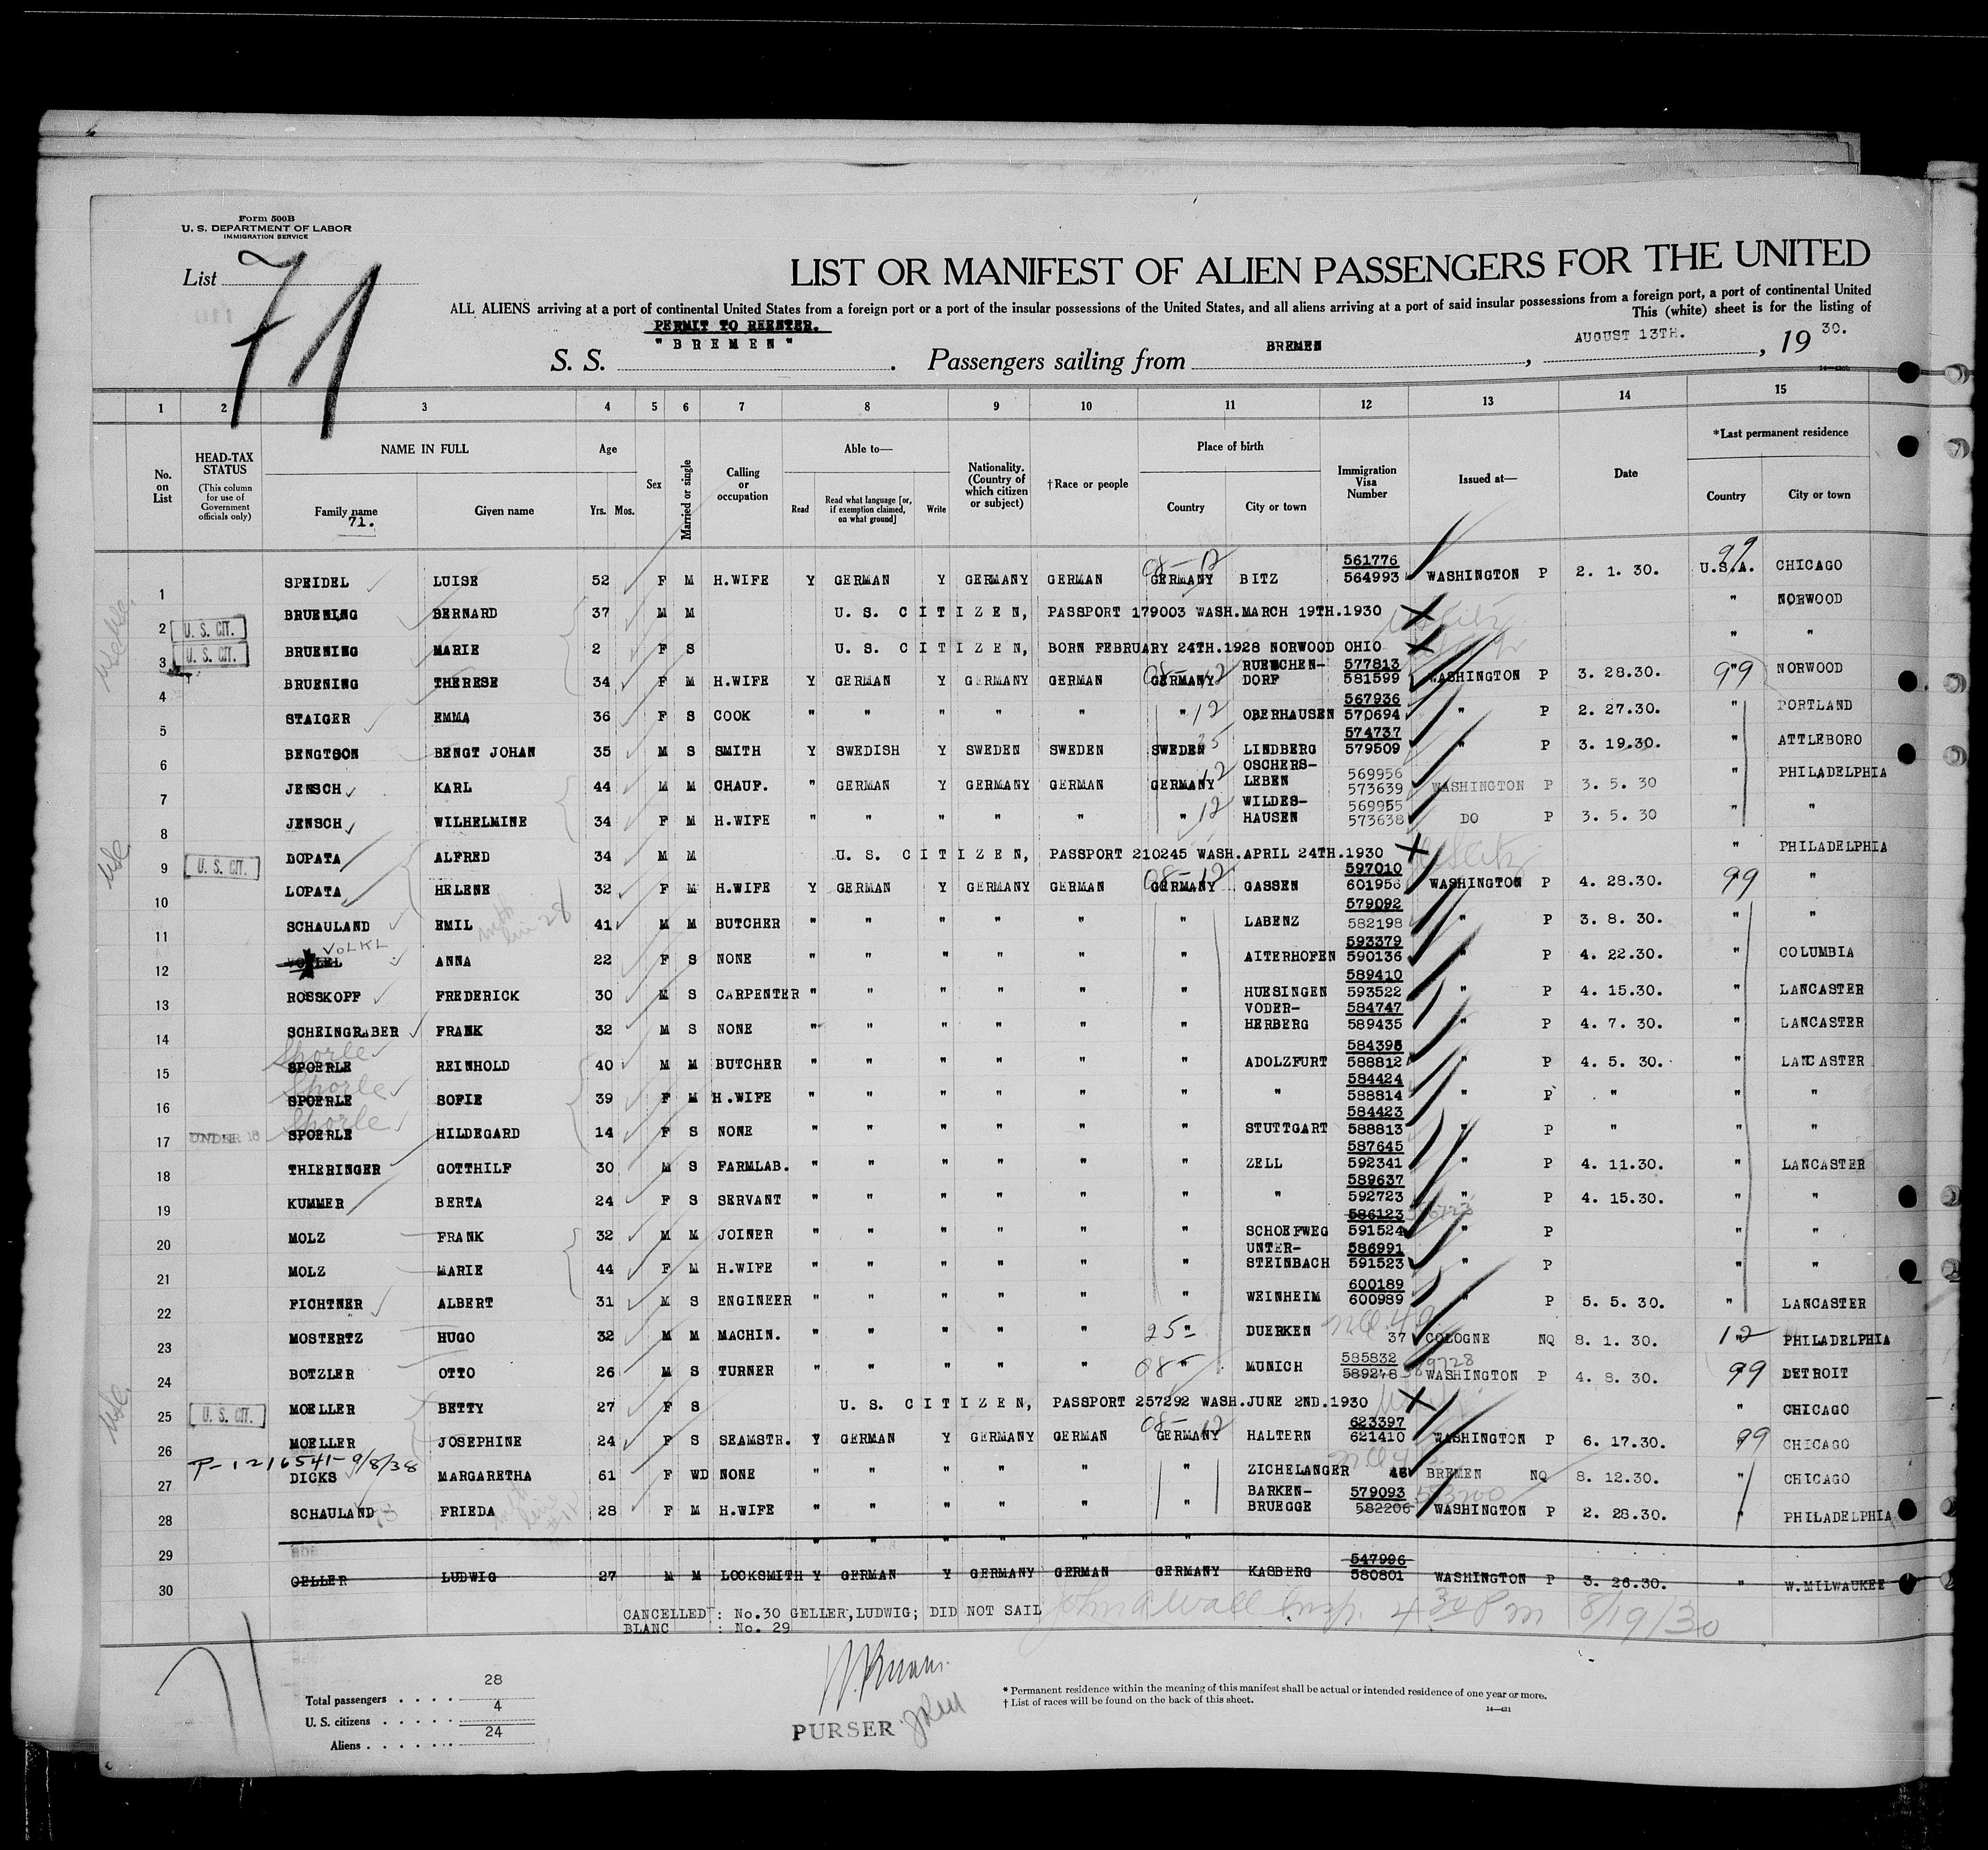 Form 500B
U. S. DEPARTMENT OF LABOR
IMMIGRATION SERVICE
List 71
LIST OR MANIFEST OF ALIEN PASSENGERS FOR THE UNITED
ALL ALIENS arriving at a port of continental United States from a foreign port or a port of the insular possessions of the United States, and all aliens arriving at a port of said insular possessions from a foreign port, a port of continental United
This (white) sheet is for the listing of
PERMIT TO REENTER.
S. S. "BREMEN" . Passengers sailing from BREMEN , AUGUST 13TH. , 19 30.
1 2 3 4 5 6 7 8 9 10 11 12 13 14 15
No. on List
HEAD-TAX STATUS (This column for use of Government officials only)
NAME IN FULL
Family name 71. Given name
Age
Yrs. Mos.
Sex
Married or single
Calling or occupation
Able to—
Read
Read what language [or, if exemption claimed, on what ground]
Write
Nationality. (Country of which citizen or subject)
†Race or people
Place of birth
Country City or town
Immigration Visa Number
Issued at—
Date
*Last permanent residence
Country City or town
1 SPEIDEL LUISE 52 F M H.WIFE Y GERMAN Y GERMANY GERMAN GERMANY BITZ 561776 564993 WASHINGTON P 2. 1. 30. U.S.A. CHICAGO
08-12 99
2 U. S. CIT. BRUENING BERNARD 37 M M U. S. CITIZEN, PASSPORT 179003 WASH.MARCH 19TH.1930 " NORWOOD
3 U. S. CIT. BRUENING MARIE 2 F S U. S. CITIZEN, BORN FEBRUARY 24TH.1928 NORWOOD OHIO " "
4 BRUENING THERESE 34 F M H.WIFE Y GERMAN Y GERMANY GERMAN GERMANY RUENCHEN-DORF 577813 581599 WASHINGTON P 3. 28.30. 99 " NORWOOD
5 STAIGER EMMA 36 F S COOK " " " " " " 12 OBERHAUSEN 567936 570694 " P 2. 27.30. " PORTLAND
6 BENGTSON BENGT JOHAN 35 M S SMITH Y SWEDISH Y SWEDEN SWEDEN SWEDEN LINDBERG 574737 579509 " P 3. 19.30. " ATTLEBORO
7 JENSCH KARL 44 M M CHAUF. " GERMAN Y GERMANY GERMAN GERMANY 12 OSCHERS-LEBEN 569956 573639 WASHINGTON P 3. 5. 30 " PHILADELPHIA
8 JENSCH WILHELMINE 34 F M H.WIFE " " " " " " 12 WILDES-HAUSEN 569955 573638 DO P 3. 5. 30 " "
9 U. S. CIT. LOPATA ALFRED 34 M M U. S. CITIZEN, PASSPORT 210245 WASH.APRIL 24TH.1930 " PHILADELPHIA
10 LOPATA HELENE 32 F M H.WIFE Y GERMAN Y GERMANY GERMAN GERMANY 08-12 GASSEN 597010 601956 WASHINGTON P 4. 28.30. 99 "
11 SCHAULAND EMIL 41 M M BUTCHER " " " " " " LABENZ 579092 582198 " P 3. 8. 30. " "
with line 28
12 VOLKL ANNA 22 F S NONE " " " " " " AITERHOFEN 593379 590136 " P 4. 22.30. " COLUMBIA
13 ROSSKOPF FREDERICK 30 M S CARPENTER " " " " " " HUESINGEN 589410 593522 " P 4. 15.30. " LANCASTER
14 SCHEINGRABER FRANK 32 M S NONE " " " " " " VODER-HERBERG 584747 589435 " P 4. 7. 30. " LANCASTER
Sporle
15 SPOERLE REINHOLD 40 M M BUTCHER " " " " " " ADOLZFURT 584395 588812 " P 4. 5. 30. " LANCASTER
Sporle
16 SPOERLE SOFIE 39 F M H.WIFE " " " " " " " 584424 588814 " P " " "
Sporle
17 UNDER 16 SPOERLE HILDEGARD 14 F S NONE " " " " " " STUTTGART 584423 588813 " P " " "
18 THIERINGER GOTTHILF 30 M S FARMLAB. " " " " " " ZELL 587645 592341 " P 4. 11.30. " LANCASTER
19 KUMMER BERTA 24 F S SERVANT " " " " " " " 589637 592723 " P 4. 15.30. " "
20 MOLZ FRANK 32 M M JOINER " " " " " " SCHOEFWEG 586123 591524 " P " "
21 MOLZ MARIE 44 F M H.WIFE " " " " " " UNTER-STEINBACH 586991 591523 " P " "
22 FICHTNER ALBERT 31 M S ENGINEER " " " " " " WEINHEIM 600189 600989 " P 5. 5. 30. " LANCASTER
23 MOSTERTZ HUGO 32 M M MACHIN. " " " " " 25 " DUERKEN 37 COLOGNE NQ 8. 1. 30. 12 " PHILADELPHIA
24 BOTZLER OTTO 26 M S TURNER " " " " " 08 " MUNICH 585832 589278 WASHINGTON P 4. 8. 30. 99 DETROIT
25 U. S. CIT. MOELLER BETTY 27 F S U. S. CITIZEN, PASSPORT 257292 WASH.JUNE 2ND.1930 " CHICAGO
26 MOELLER JOSEPHINE 24 F S SEAMSTR. Y GERMAN Y GERMANY GERMAN GERMANY 08-12 HALTERN 623397 621410 WASHINGTON P 6. 17.30. 99 CHICAGO
P-1216541-9/8/38
27 DICKS MARGARETHA 61 F WD NONE " " " " " " ZICHELANGER 46 BREMEN NQ 8. 12.30. " CHICAGO
28 SCHAULAND FRIEDA 28 F M H.WIFE " " " " " " BARKEN-BRUEGGE 579093 582206 WASHINGTON P 2. 28.30. " PHILADELPHIA
29 " " " " " "
30 GELLER LUDWIG 27 M M LOCKSMITH Y GERMAN Y GERMANY GERMAN GERMANY KASBERG 547996 580801 WASHINGTON P 3. 26.30. " W.MILWAUKEE
CANCELLED : No.30 GELLER,LUDWIG; DID NOT SAIL
BLANC : No. 29
John A Wall Insp. 4 30 Pm 8/19/30
71
Total passengers . . . . 28
U. S. citizens . . . . . 4
Aliens . . . . . . 24
PURSER
* Permanent residence within the meaning of this manifest shall be actual or intended residence of one year or more.
† List of races will be found on the back of this sheet.
14—431